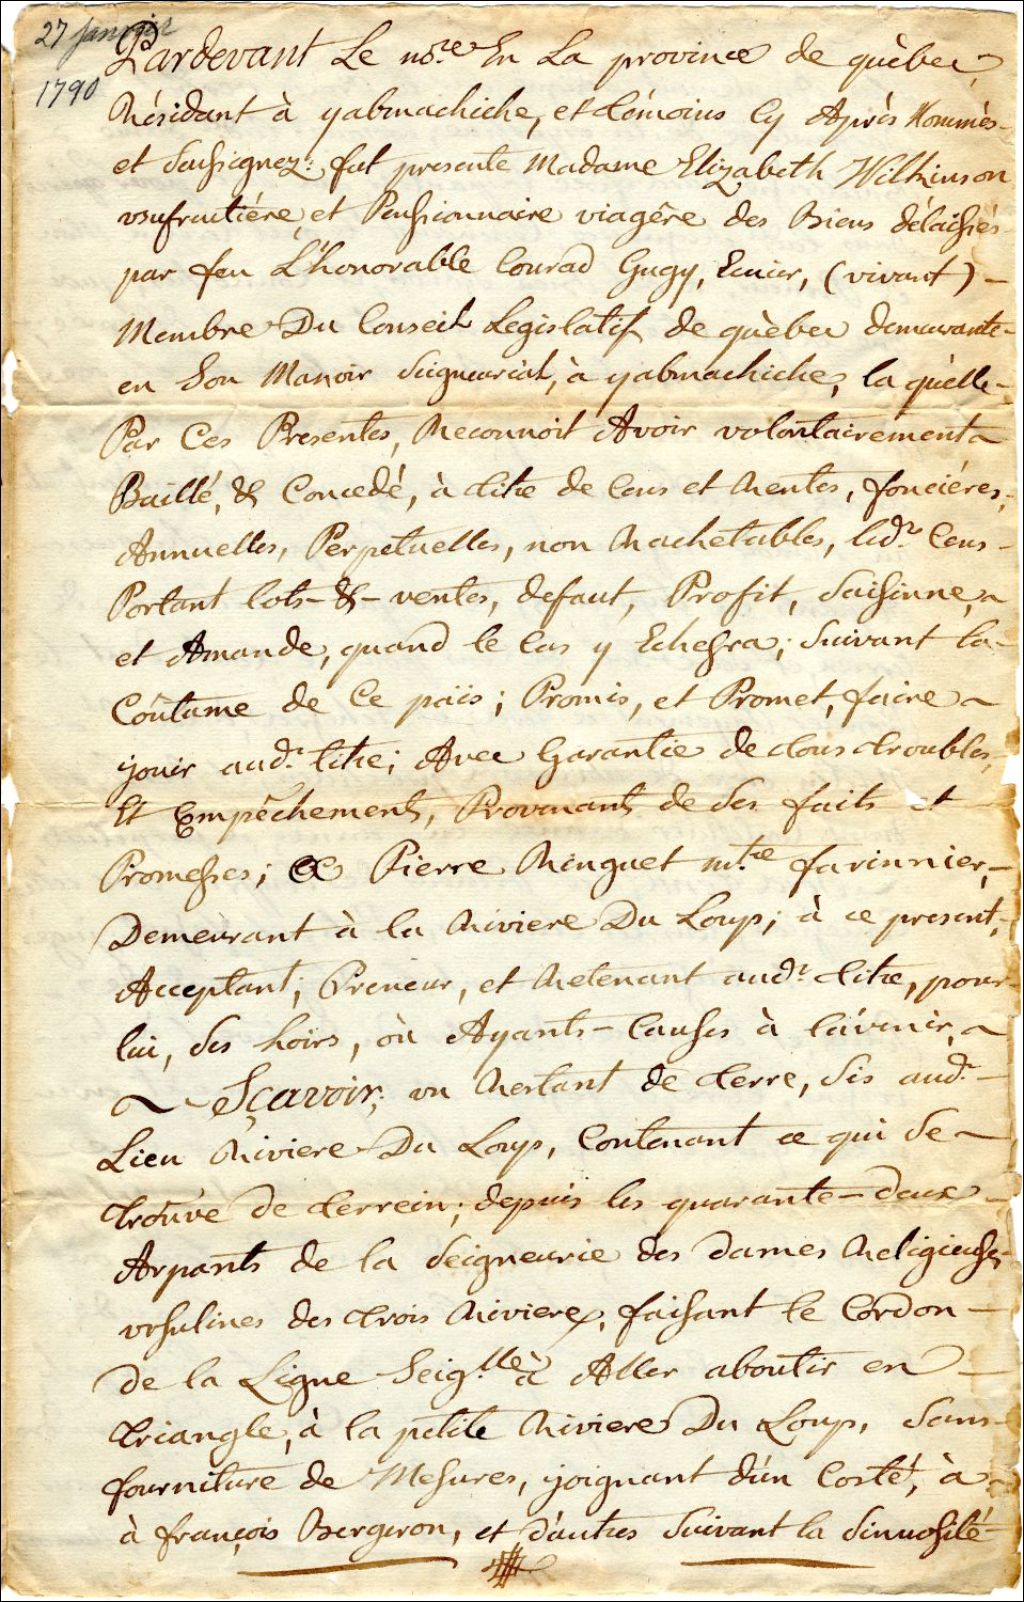 27 janvier
1790
Pardevant Le no.re En La province de quèbec,
Résidant à yabmachiche, et témoins Cy Après Nommés
et Soussignez: fut presente Madame Elizabeth Wilkinson
usufruitiére, et Pensionnaire viagêre des Biens délaissés
par feu L'honorable Conrad Gugy, Ecuier, (vivant) -
Membre Du Conseil Legislatif de quèbec demeurante-
en Son Manoir Seigneurial, à yabmachiche, la quèlle-
Par Ces Presentes, Reconnoit Avoir volontairement
Baillé, & Concedé, à titre de Cens et Rentes, fonciéres,
Annuelles, Perpetuelles, non Rachetables, led.t Cens -
Portant lots - & - ventes, defaut, Profit, Saisinne,
et Amande, quand le Cas y Echesra; Suivant la-
Coûtume de Ce païs; Promis, et Promet, faire
jouir aud.t titre; Avec Garantie de tous troubles,
Et Empêchements, Provenants de Ses faits et
Promesses; a Pierre Minguet m.tre farinnier,-
Demeurant à la Riviere Du Loup; à ce present,
Acceptant; Preneur, et Retenant aud.t titre, pour-
lui, Ses hoirs, où Ayants - Causes à l'avenir,
Sçavoir; un Restant de terre, Sis aud.t -
Lieu Riviere Du Loup, Contenant ce qui Se
trouve de terrein; depuis les quarante - deux -
Arpants de la Seigneurie des Dames Religieuses
ursulines des trois Rivieres, faisant le Cordon -
de la Ligne Seig.lle à Aller aboutir en -
triangle, à la petite Riviere Du Loup, Sans-
fourniture de Mesures, joignant d'ún Costé, à
à françois Bergeron, et d'autres Suivant la Sinuosité-